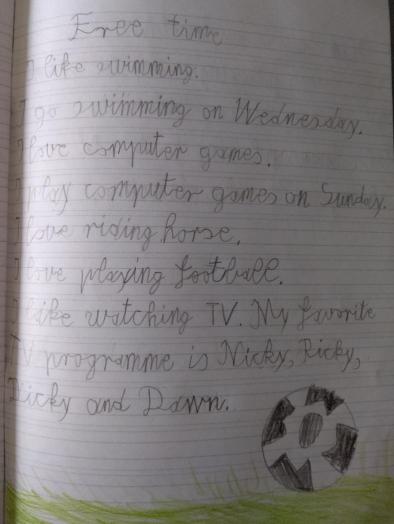 Free time
I like swimming.
I go swimming on Wednesday.
I love computer games.
I play computer games on Sunday.
I love riding horse.
I love playing football.
I like watching TV. My favorite
TV programme is Nicky, Ricky,
Dicky and Dawn.